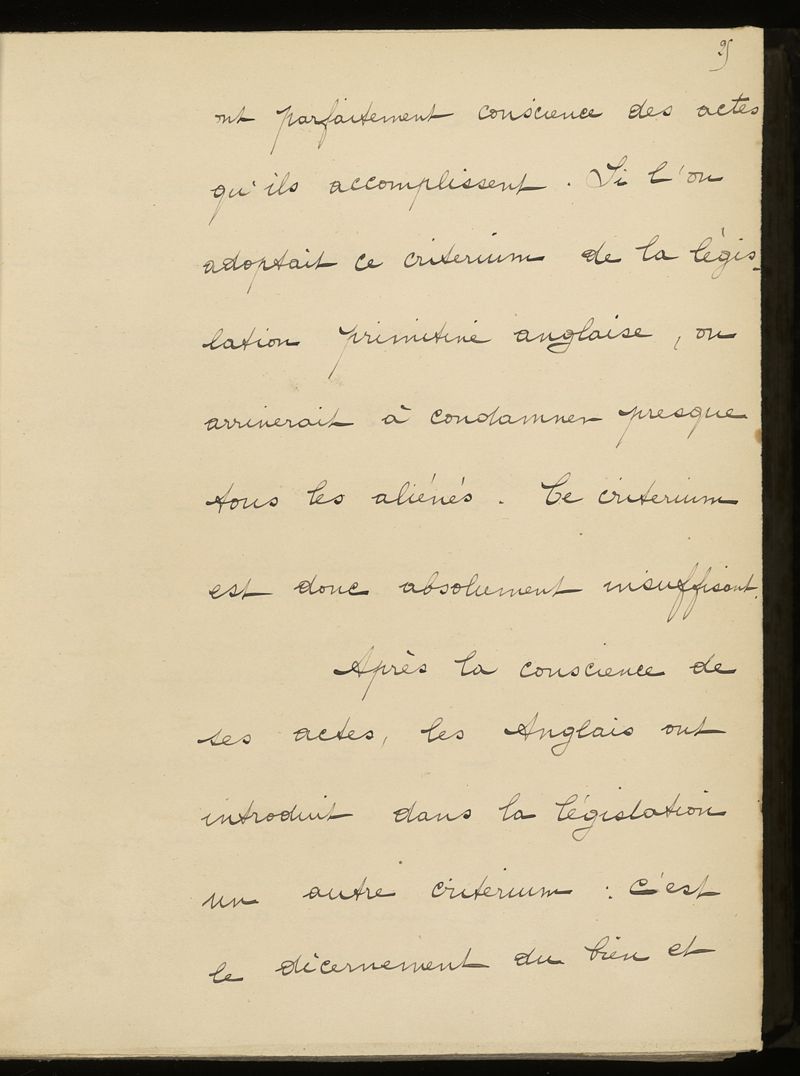 25
ont parfaitement conscience des actes
qu'ils accomplissent. Si l'on
adoptait ce criterium de la légis-
lation primitive anglaise, on
arriverait à condamner presque
tous les aliénés. Ce criterium
est donc absolument insuffisant.
Après la conscience de
ses actes, les Anglais ont
introduit dans la législation
un autre criterium : c'est
le dicernement du bien et